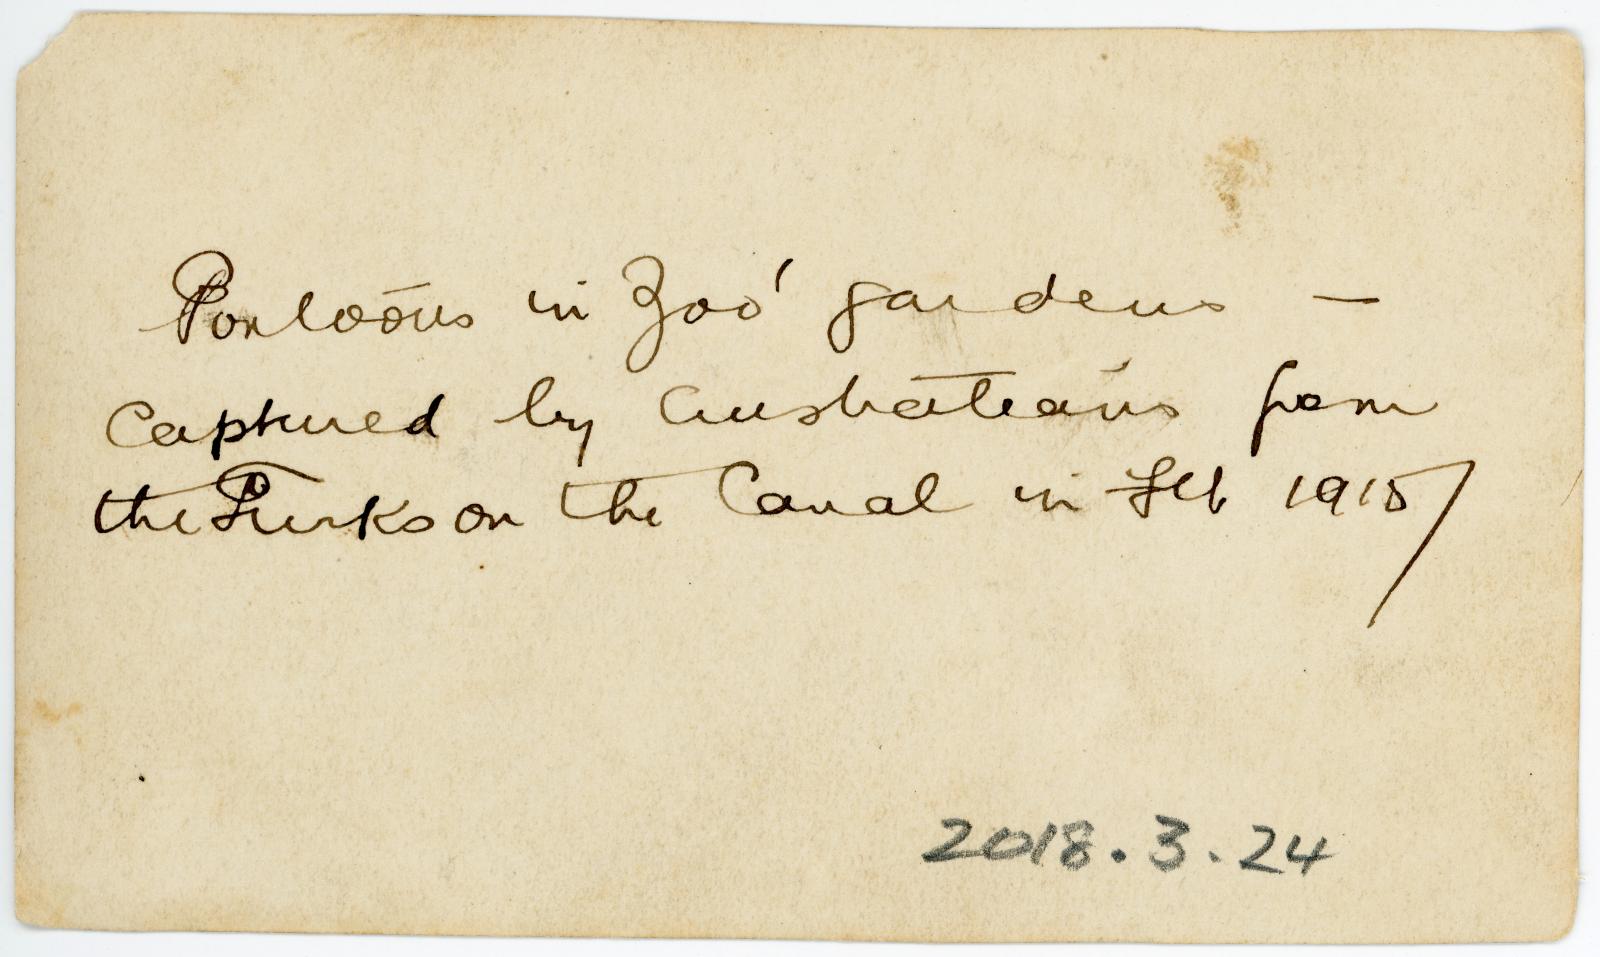 Pontoons in Zoo' gardens —
captured by Australians from
the Turks on the Canal in Feb 1915/
2018.3.24